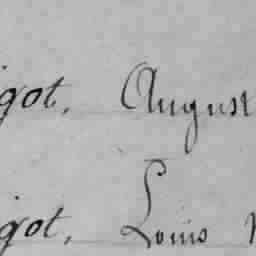 got, August
got, Louis